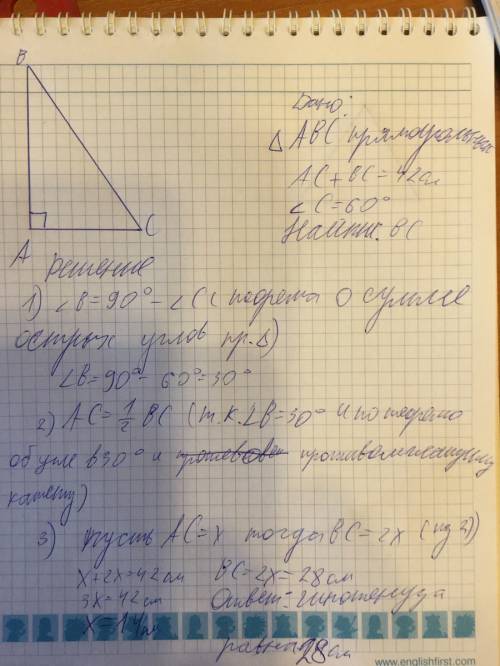 B
Дано:
Δ ABC прямоугольный
AC + BC = 42 см
∠C = 60°
Найти: BC
C
A
Решение
1) ∠B = 90° - ∠C ( теорема о сумме
острых углов пр. Δ)
∠B = 90° - 60° = 30°
2) AC = 1/2 BC (т.к. ∠B = 30° и по теореме
об угле в 30° и противолежащему
катету)
3) Пусть AC = x тогда BC = 2x (из 2))
x + 2x = 42 см BC = 2x = 28 см
3x = 42 см Ответ: гипотенуза
x = 14 см
равна 28 см
www.englishfirst.com